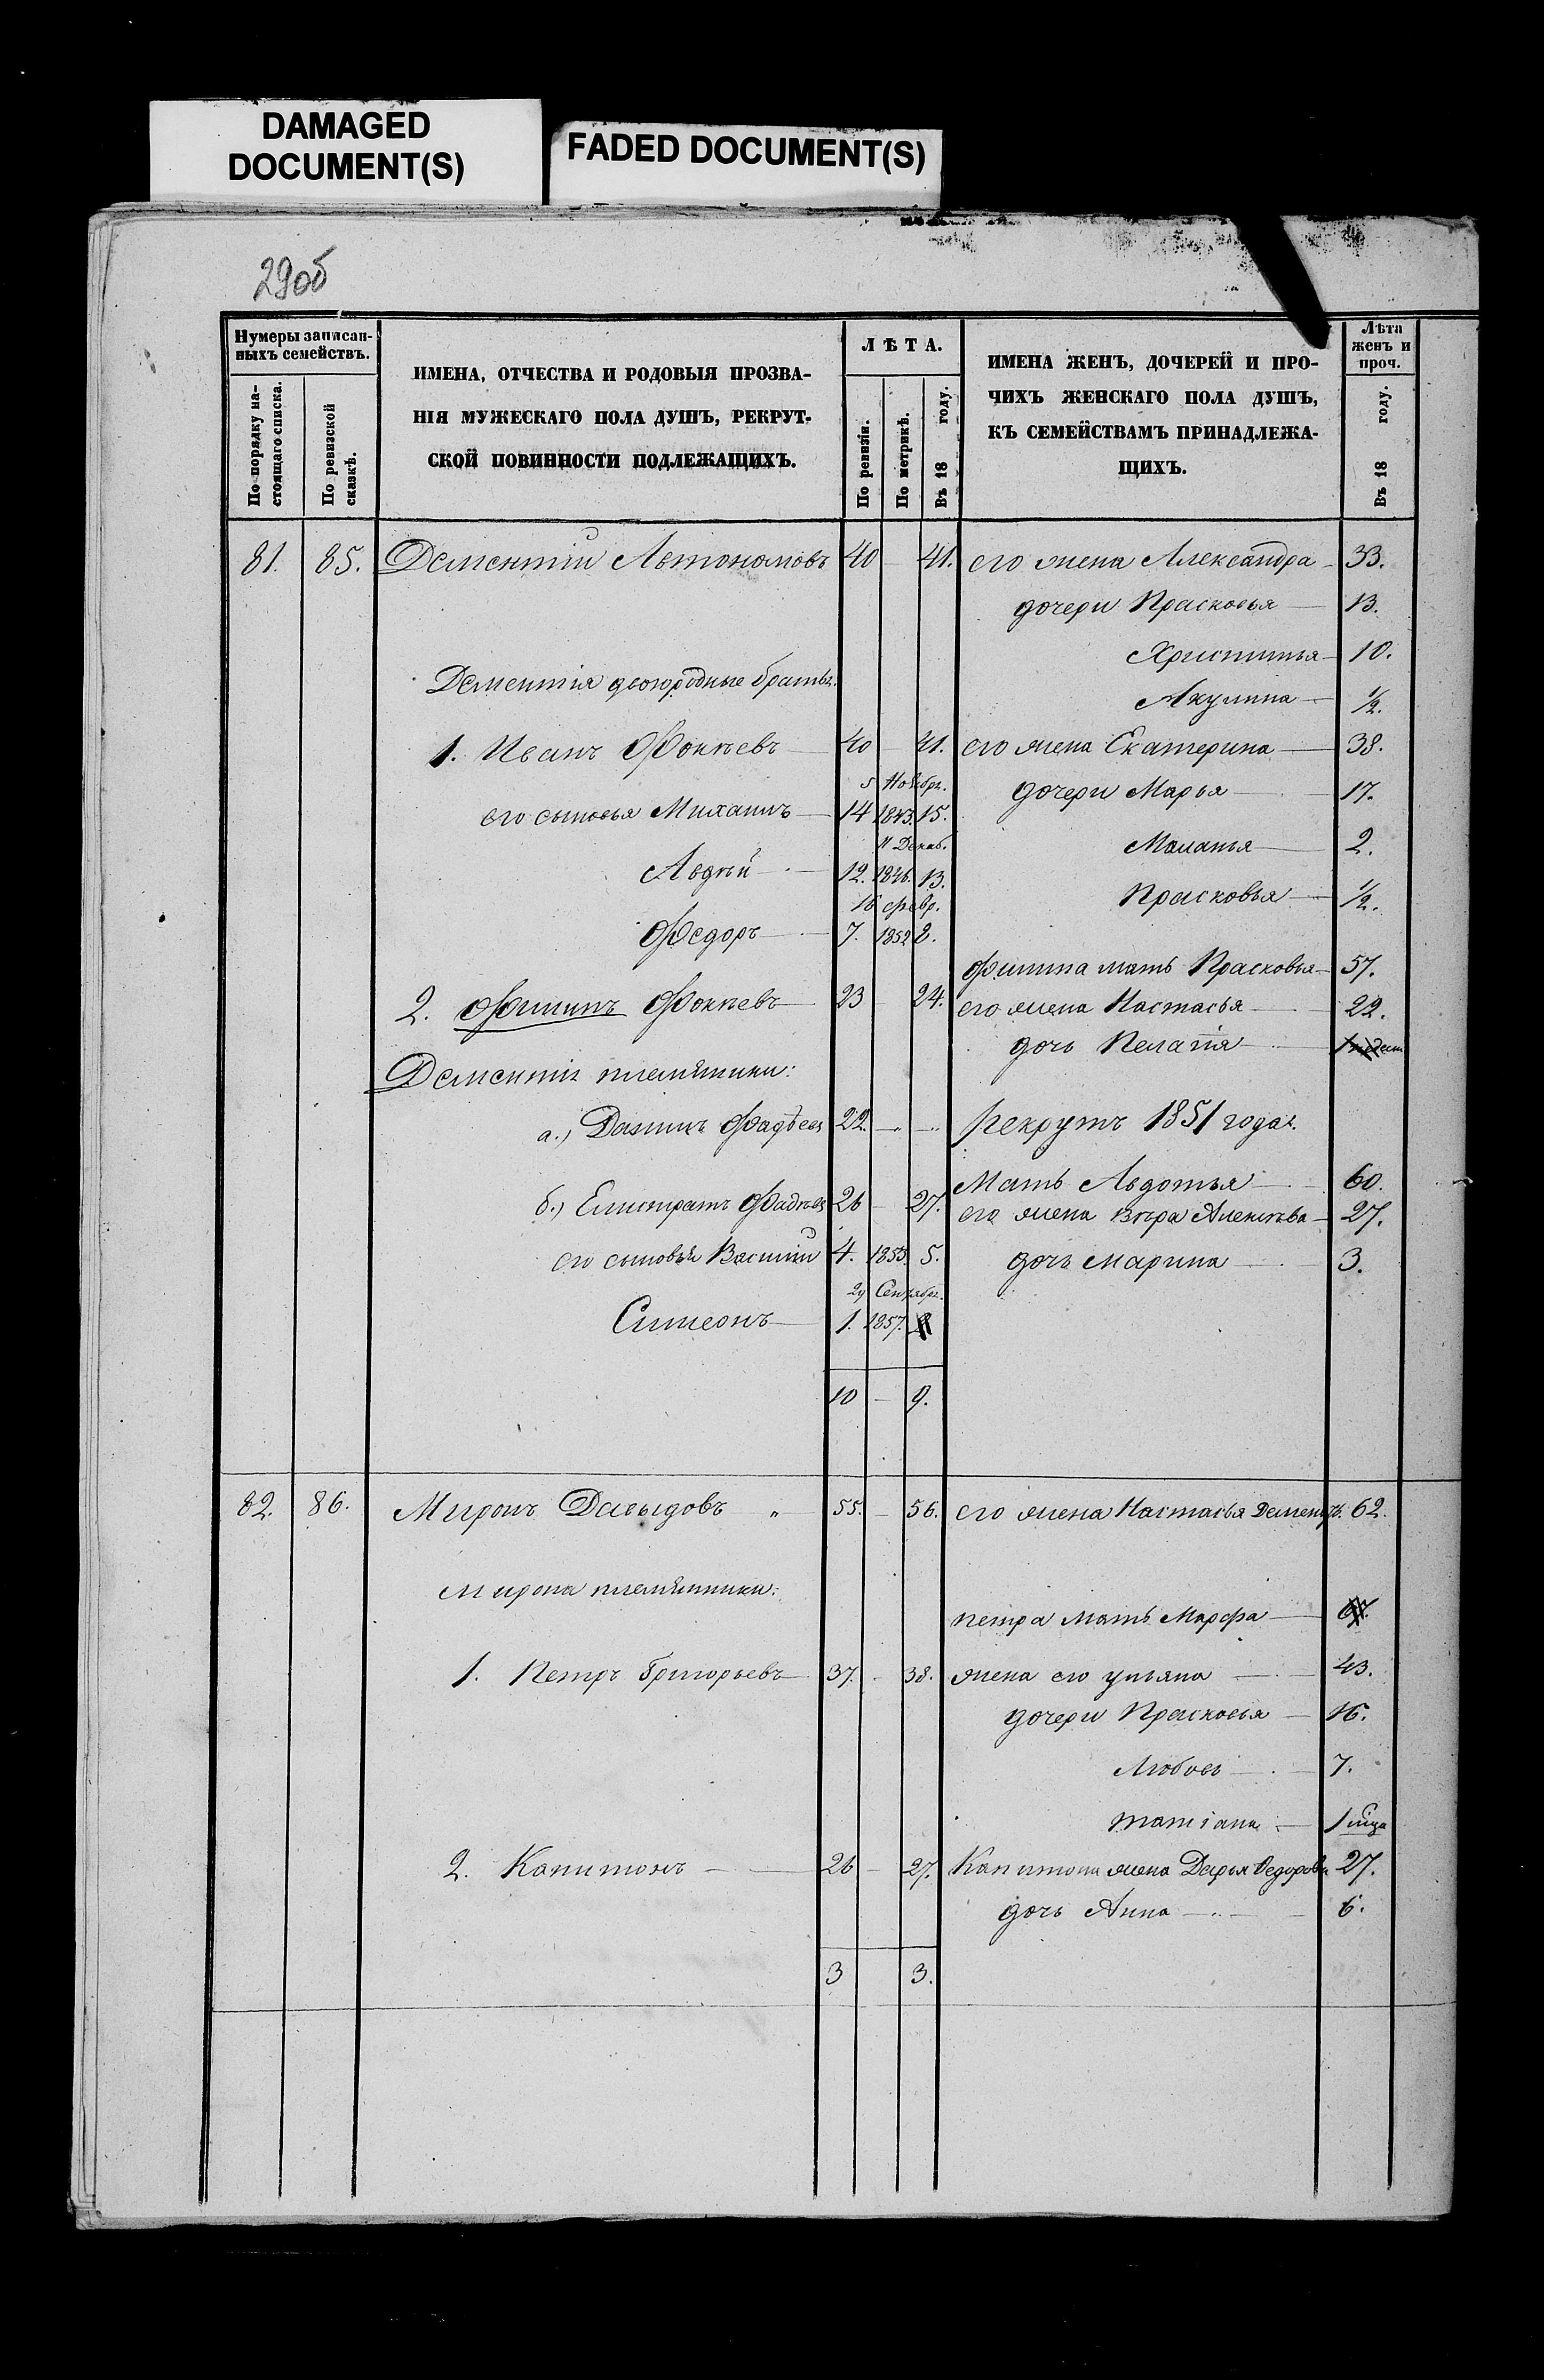 DAMAGED
DOCUMENT(S)
FADED DOCUMENT(S)
29об
Нумеры записан-
ныхъ семействъ.
По порядку на-
стоящаго списка.
По ревизской
сказкѣ.
ИМЕНА, ОТЧЕСТВА И РОДОВЫЯ ПРОЗВА-
НІЯ МУЖЕСКАГО ПОЛА ДУШЪ, РЕКРУТ-
СКОЙ ПОВИННОСТИ ПОДЛЕЖАЩИХЪ.
ЛѢТА.
По ревизіи.
По метрикѣ.
Въ 18 году.
ИМЕНА ЖЕНЪ, ДОЧЕРЕЙ И ПРО-
ЧИХЪ ЖЕНСКАГО ПОЛА ДУШЪ,
КЪ СЕМЕЙСТВАМЪ ПРИНАДЛЕЖА-
ЩИХЪ.
Лѣта
женъ и
проч.
Въ 18 году.
81. 85. Дементій Автономовъ 40 — 41. его жена Александра — 33.
дочери Прасковья — 13.
Христинья — 10.
Дементія двоюродные братья.
Акулина — 1/2.
1. Иванъ Фокѣевъ — 40 — 41. его жена Екатерина — 38.
5 Ноября.
дочери Марья — 17.
его сыновья Михаилъ — 14 1843. 15.
11 Декаб.
Маланья — 2.
Авдѣй — 12. 1846. 13.
16 Февр.
Прасковья — 1/2.
Федоръ — 7. 1852 8.
Филипа мать Прасковья — 57.
2. Филипъ Фокѣевъ — 23 24. его жена Настасья — 22.
дочь Пелагія —
Дементія племянники:
а.) Данилъ Фадѣевъ 22. — — рекрутъ 1851 года.
Мать Авдотья — 60.
б.) Елистратъ Фадѣевъ 26 — 27. его жена Вѣра Алексѣева — 27.
его сыновья Василій 4. 1853. 5. дочь Марина — 3.
29 Сентября.
Симеонъ — 1. 1857.
10 — 9.
82. 86. Миронъ Давыдовъ „ — 55. — 56. его жена Настасья Демент. 62.
Мирона племянники:
петра мать Марфа — 67.
1. Петръ Григорьевъ — 37. — 38. жена его ульяна — 43.
дочери Прасковья — 16.
Любовь — 7.
татіана — 1 мца
2. Капитонъ — 26 — 27. Капитона жена Дарья Федорова 27.
дочь Анна — 6.
3 3.